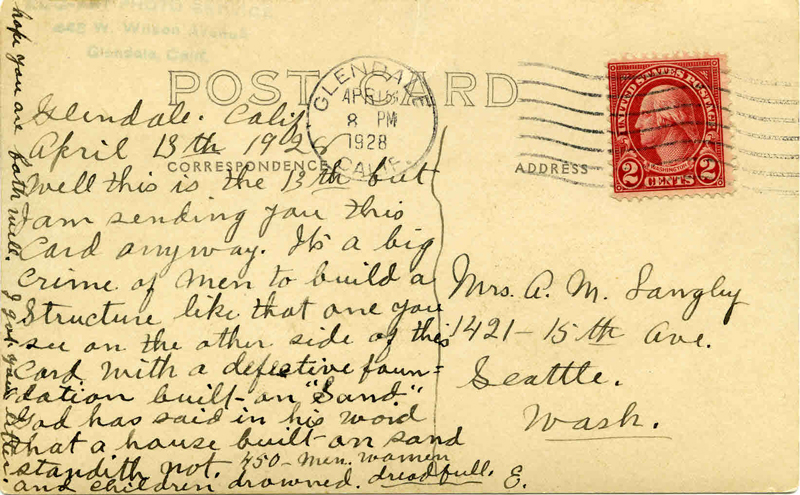 PHOTO SERVICE
W. Wilson Avenue
Glendale, Calif.
POST CARD
GLENDALE
APR
8 PM
1928
CALIF.
CORRESPONDENCE
ADDRESS
UNITED STATES POSTAGE
WASHINGTON
2 CENTS 2
Glendale. Calif
April 13th 1928
Well this is the 13th but
I am sending you this
Card anyway. It's a big
Crime of Men to build a
Structure like that one you
see on the other side of this
Card with a defective foun=
dation built on "Sand"
God has said in his word
that a house built on sand
standith not. 450 - Men. women
and children drowned. dreadfull. E.
hope you are both well. I got your letter.
Mrs. A. M. Langby
1421 - 15th Ave.
Seattle.
Wash.